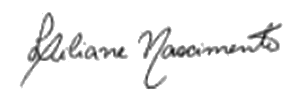 Liliane Nascimento